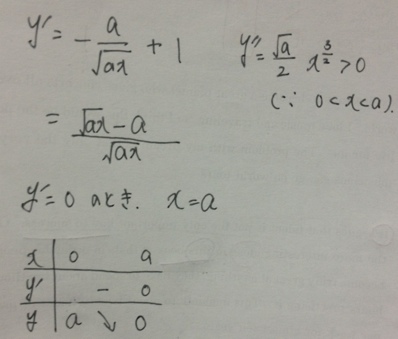 y' = - a/√ax + 1
y'' = √a/2 x^(3/2) > 0
(∵ 0 < x < a).
= (√ax - a)/√ax
y' = 0 のとき. x = a
x | 0 a
y' | - 0
y | a ↘ 0